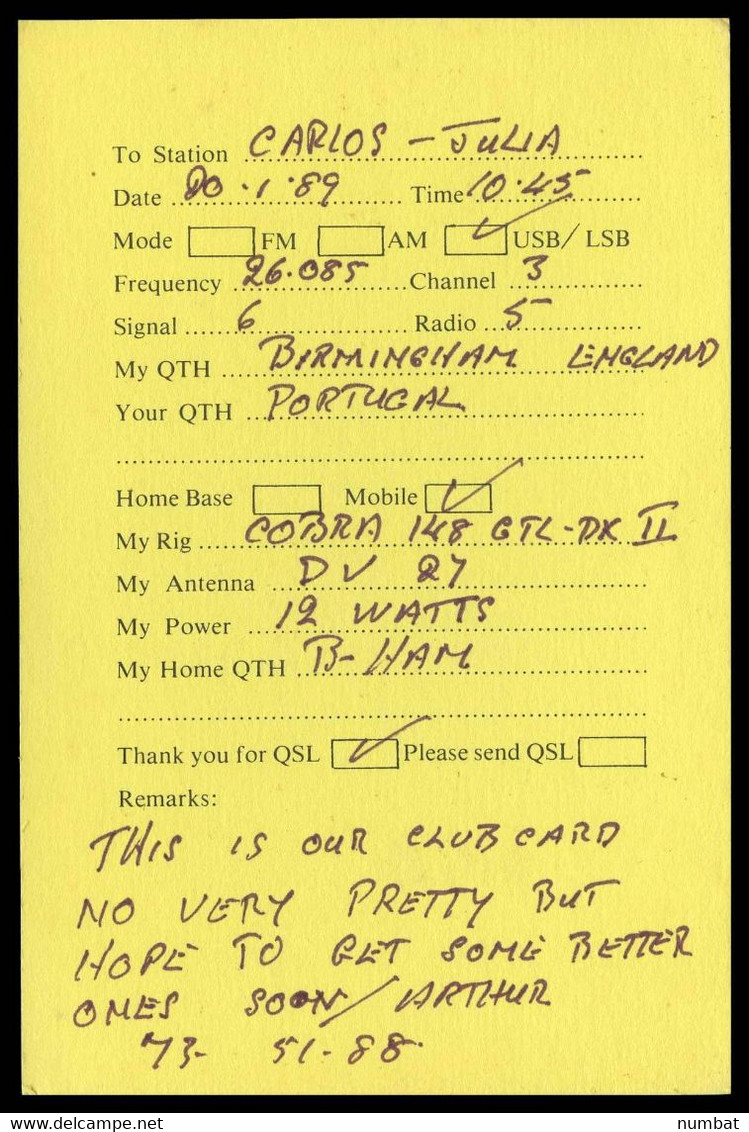 To Station CARLOS - JULIA
Date 20.1.89 Time 10.45
Mode FM AM USB/ LSB
Frequency 26.085 Channel 3
Signal 6 Radio 5
My QTH BIRMINGHAM ENGLAND
Your QTH PORTUGAL
Home Base Mobile
My Rig COBRA 148 GTL-DX II
My Antenna DV 27
My Power 12 WATTS
My Home QTH B-HAM
Thank you for QSL Please send QSL
Remarks:
THIS IS OUR CLUB CARD
NO VERY PRETTY BUT
HOPE TO GET SOME BETTER
ONES SOON/ ARTHUR
73- 51-88.
www.delcampe.net
numbat